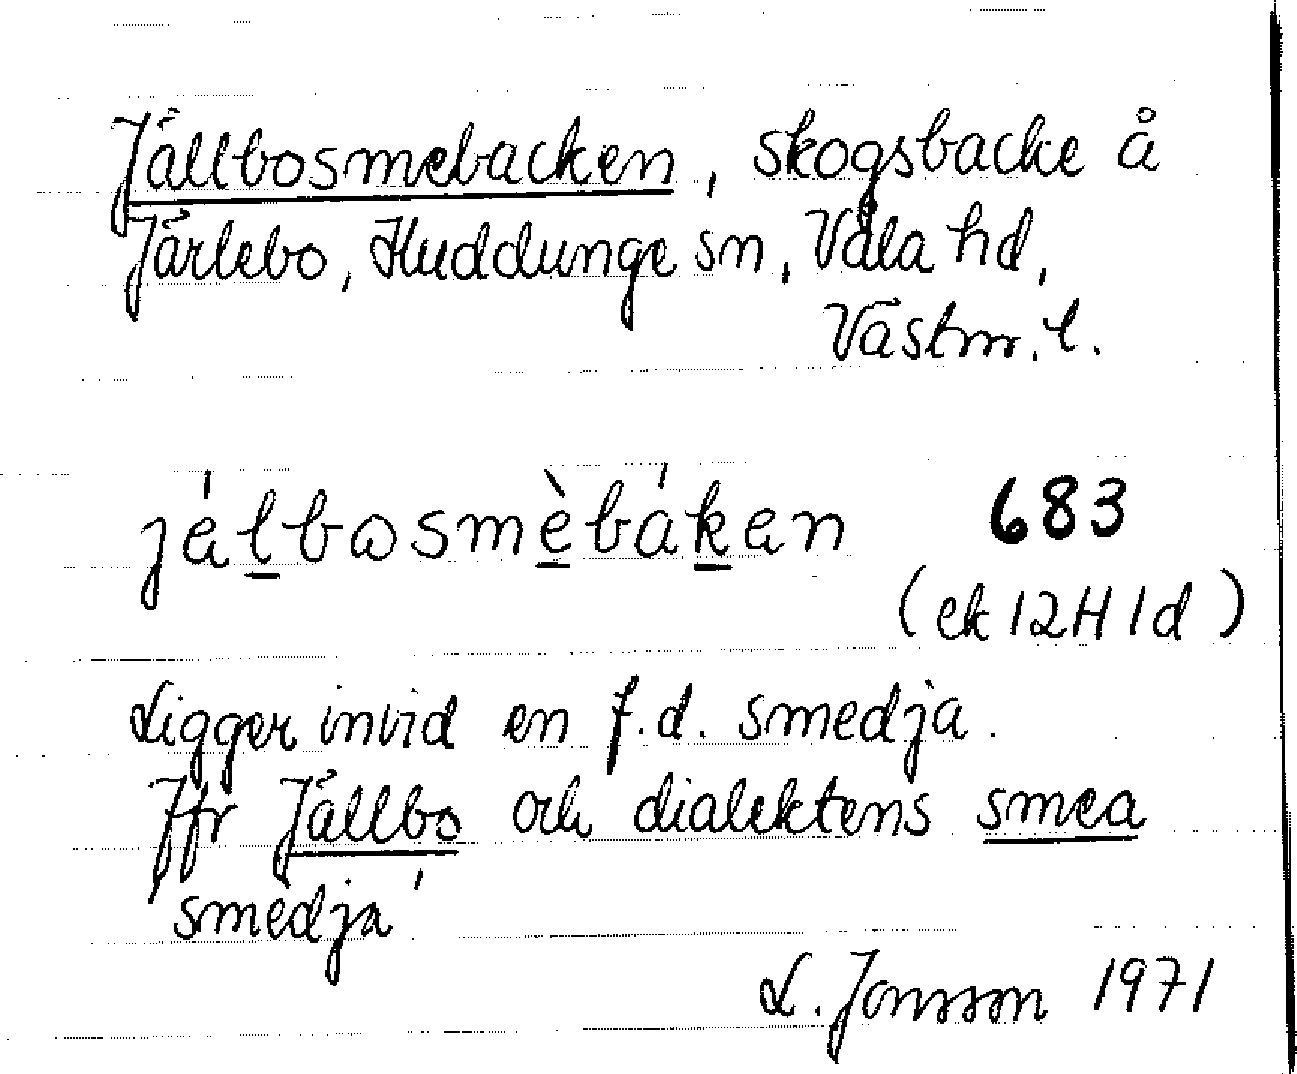 Jällbosmebacken, skogsbacke å
Järlebo, Huddunge sn, Våla hd,
Västm. l.
jálbosmèbákan 683
(ek 12H 1d)
Ligger invid en f.d. smedja.
Jfr Jällbo och dialektens smea
'smedja'
L. Jonsson 1971